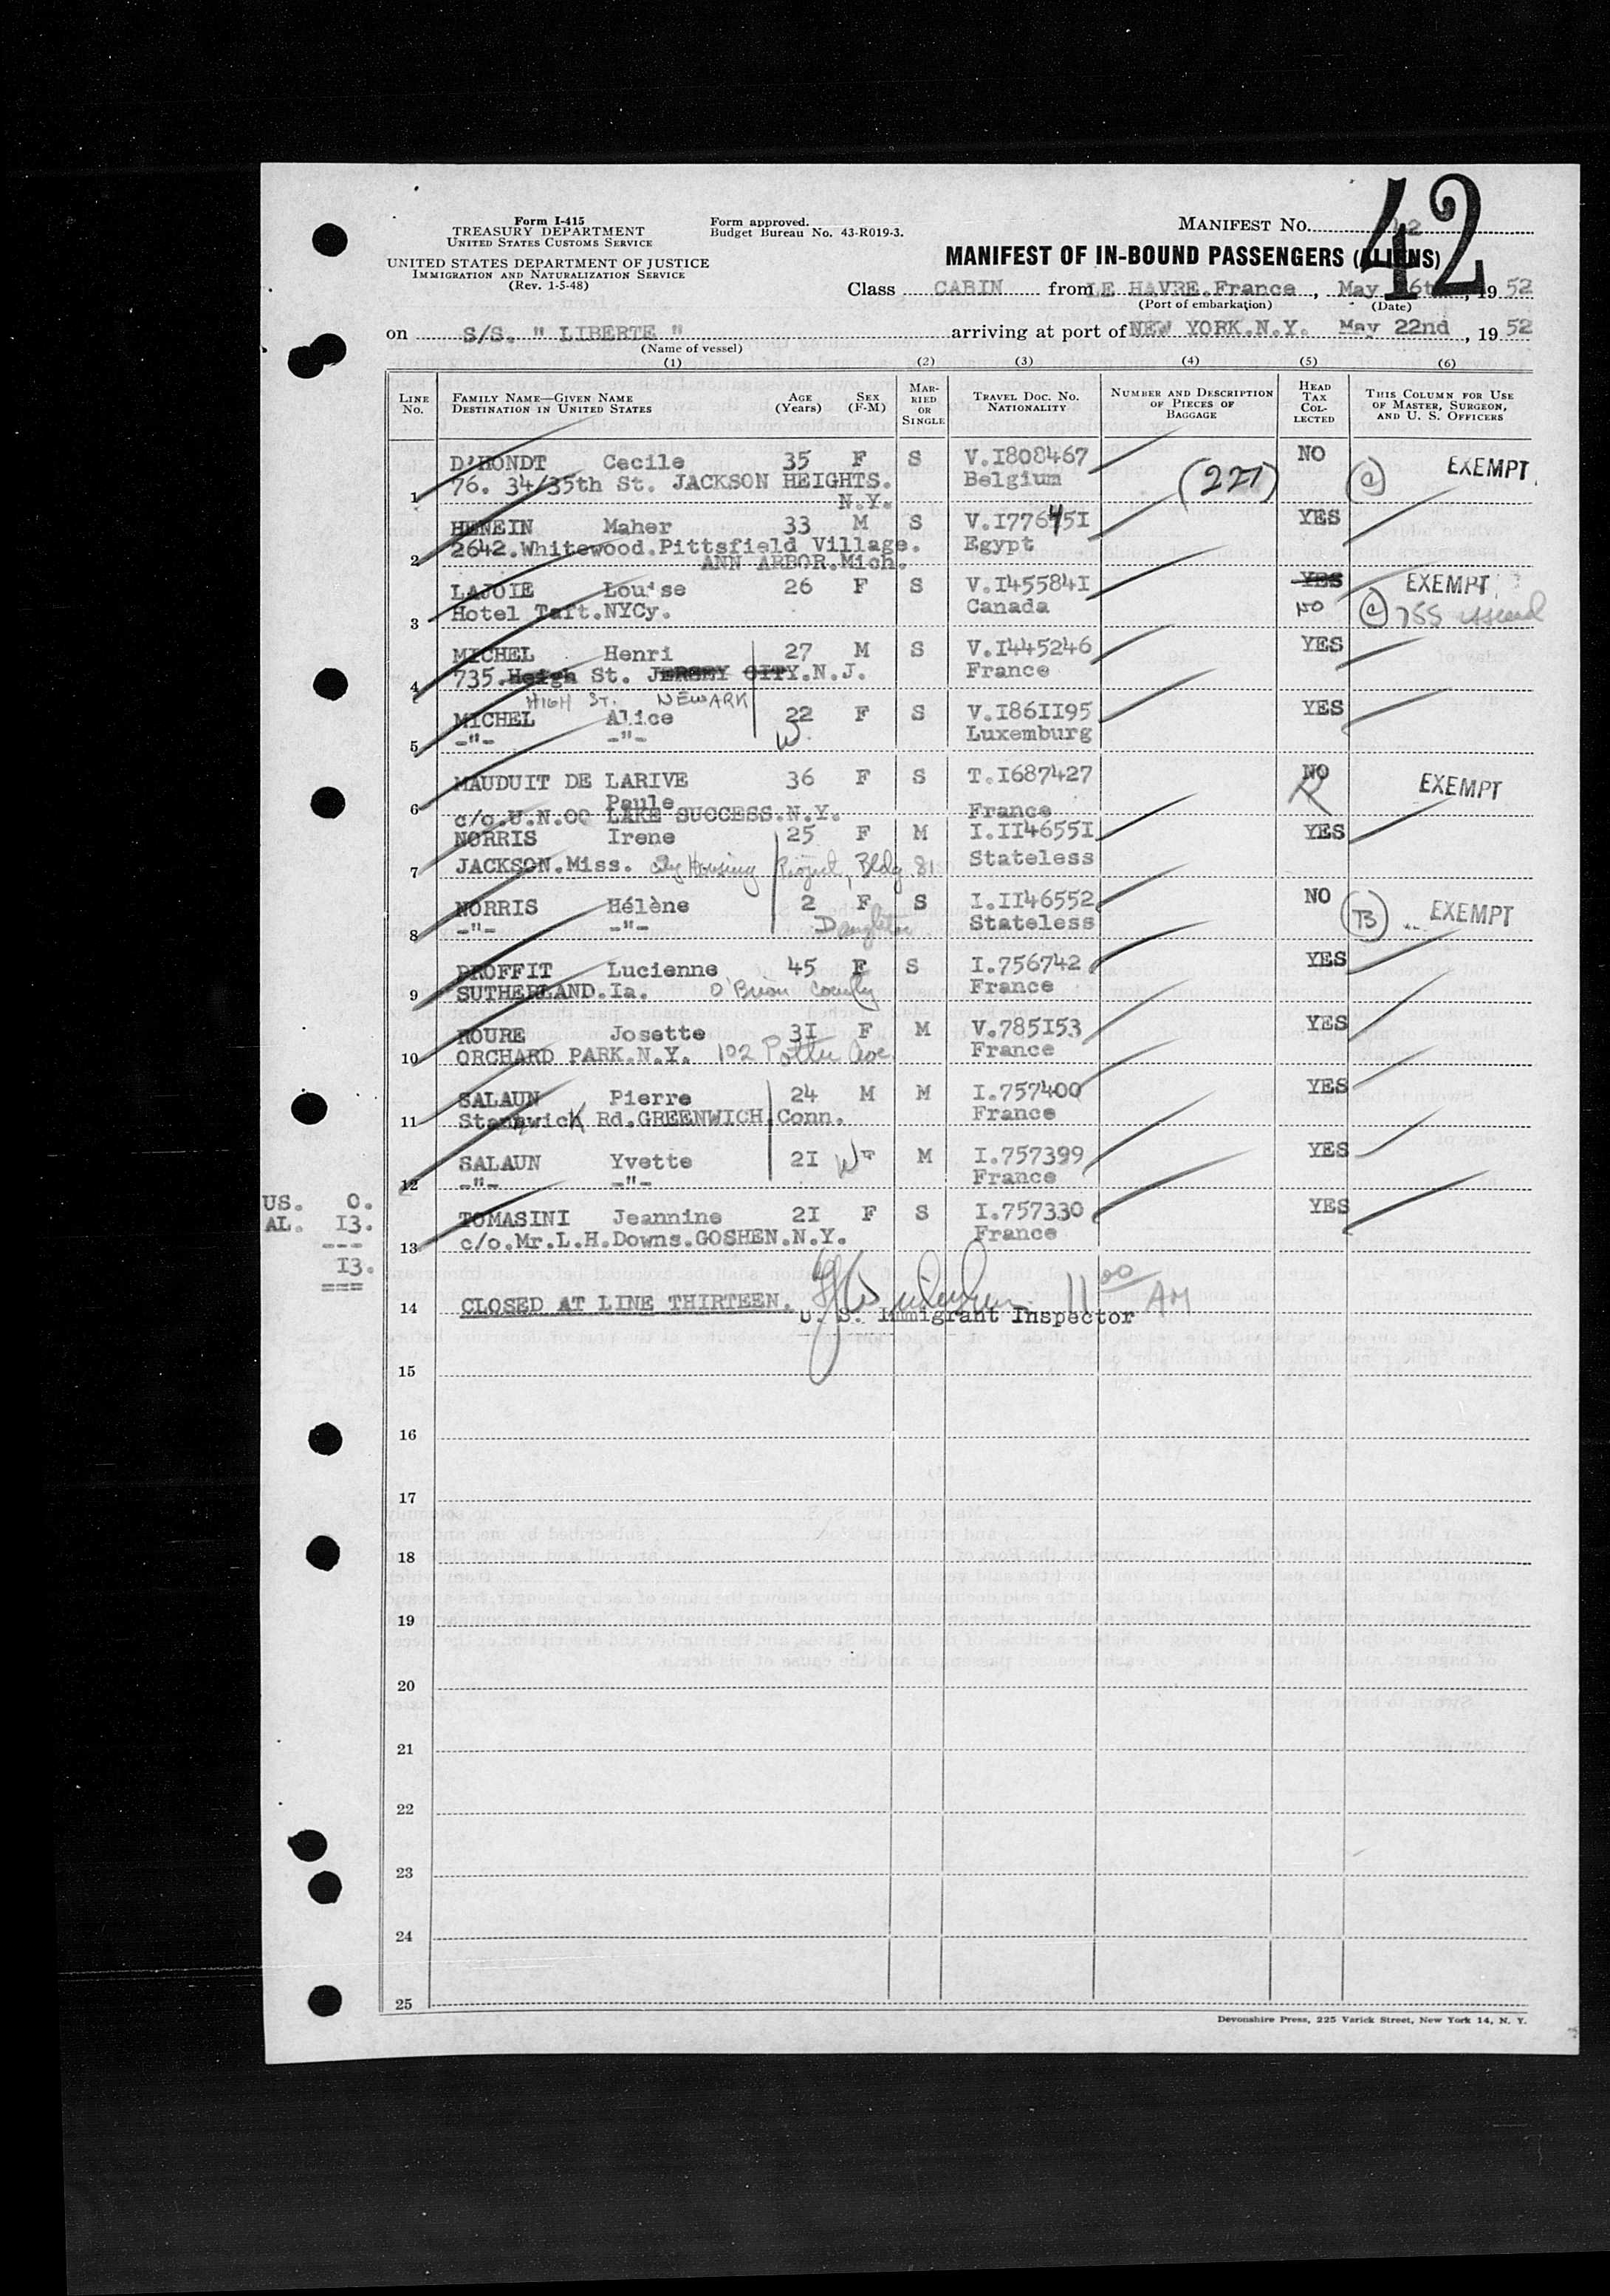 42
Form I-415
TREASURY DEPARTMENT
UNITED STATES CUSTOMS SERVICE
UNITED STATES DEPARTMENT OF JUSTICE
IMMIGRATION AND NATURALIZATION SERVICE
(Rev. 1-5-48)
Form approved.
Budget Bureau No. 43-R019-3.
MANIFEST No.
MANIFEST OF IN-BOUND PASSENGERS (ALIENS)
Class CABIN from LE HAVRE.France, May 16th, 19 52
(Port of embarkation) (Date)
on S/S. " LIBERTE " arriving at port of NEW YORK.N.Y. May 22nd, 19 52
(Name of vessel)
(1) (2) (3) (4) (5) (6)
LINE No. FAMILY NAME—GIVEN NAME DESTINATION IN UNITED STATES AGE (Years) SEX (F-M) MARRIED OR SINGLE TRAVEL DOC. NO. NATIONALITY NUMBER AND DESCRIPTION OF PIECES OF BAGGAGE HEAD TAX COLLECTED THIS COLUMN FOR USE OF MASTER, SURGEON, AND U. S. OFFICERS
D'HONDT Cecile 35 F S V.I808467 NO EXEMPT
1 76. 34/35th St. JACKSON HEIGHTS. Belgium (221) (C)
N.Y.
HENEIN Maher 33 M S V.I776451 YES
2 2642.Whitewood.Pittsfield Village. Egypt
ANN ARBOR.Mich.
LAJOIE Lou'se 26 F S V.I45584I YES EXEMPT
3 Hotel Taft.NYCy. Canada NO (C) 755 issued
MICHEL Henri 27 M S V.I445246 YES
4 735.Heigh St. JERSEY CITY.N.J. France
HIGH ST. NEWARK
MICHEL Alice 22 F S V.I86II95 YES
5 -"- -"- W Luxemburg
MAUDUIT DE LARIVE 36 F S T.I687427 NO EXEMPT
6 Paule R
c/o.U.N.OO LAKE SUCCESS.N.Y. France
NORRIS Irene 25 F M I.II4655I YES
7 JACKSON.Miss. City Housing Project, Bldg 81 Stateless
NORRIS Hélène 2 F S I.II46552 NO EXEMPT
8 -"- -"- Daughter Stateless (B)
PROFFIT Lucienne 45 F S I.756742 YES
9 SUTHERLAND.Ia. O'Brien County France
ROURE Josette 3I F M V.785I53 YES
10 ORCHARD PARK.N.Y. 102 Potter Ave France
SALAUN Pierre 24 M M I.757400 YES
11 Stanwich Rd.GREENWICH.Conn. France
SALAUN Yvette 2I W M I.757399 YES
12 -"- -"- France
US. 0.
AL. I3.
---
I3.
===
TOMASINI Jeannine 2I F S I.757330 YES
13 c/o.Mr.L.H.Downs.GOSHEN.N.Y. France
14 CLOSED AT LINE THIRTEEN. 11 00 AM
U. S. Immigrant Inspector
15
16
17
18
19
20
21
22
23
24
25
Devonshire Press, 225 Varick Street, New York 14, N. Y.